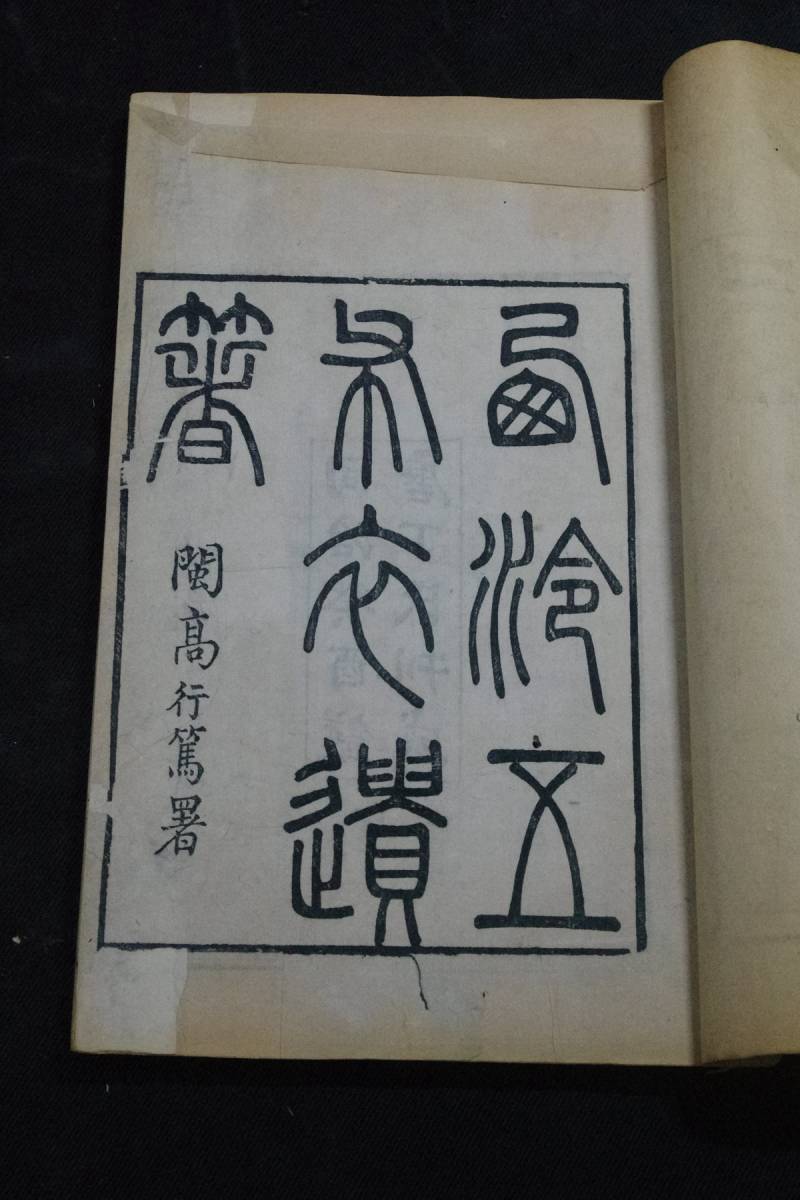 西泠五
布衣遺
箸
閩高行篤署